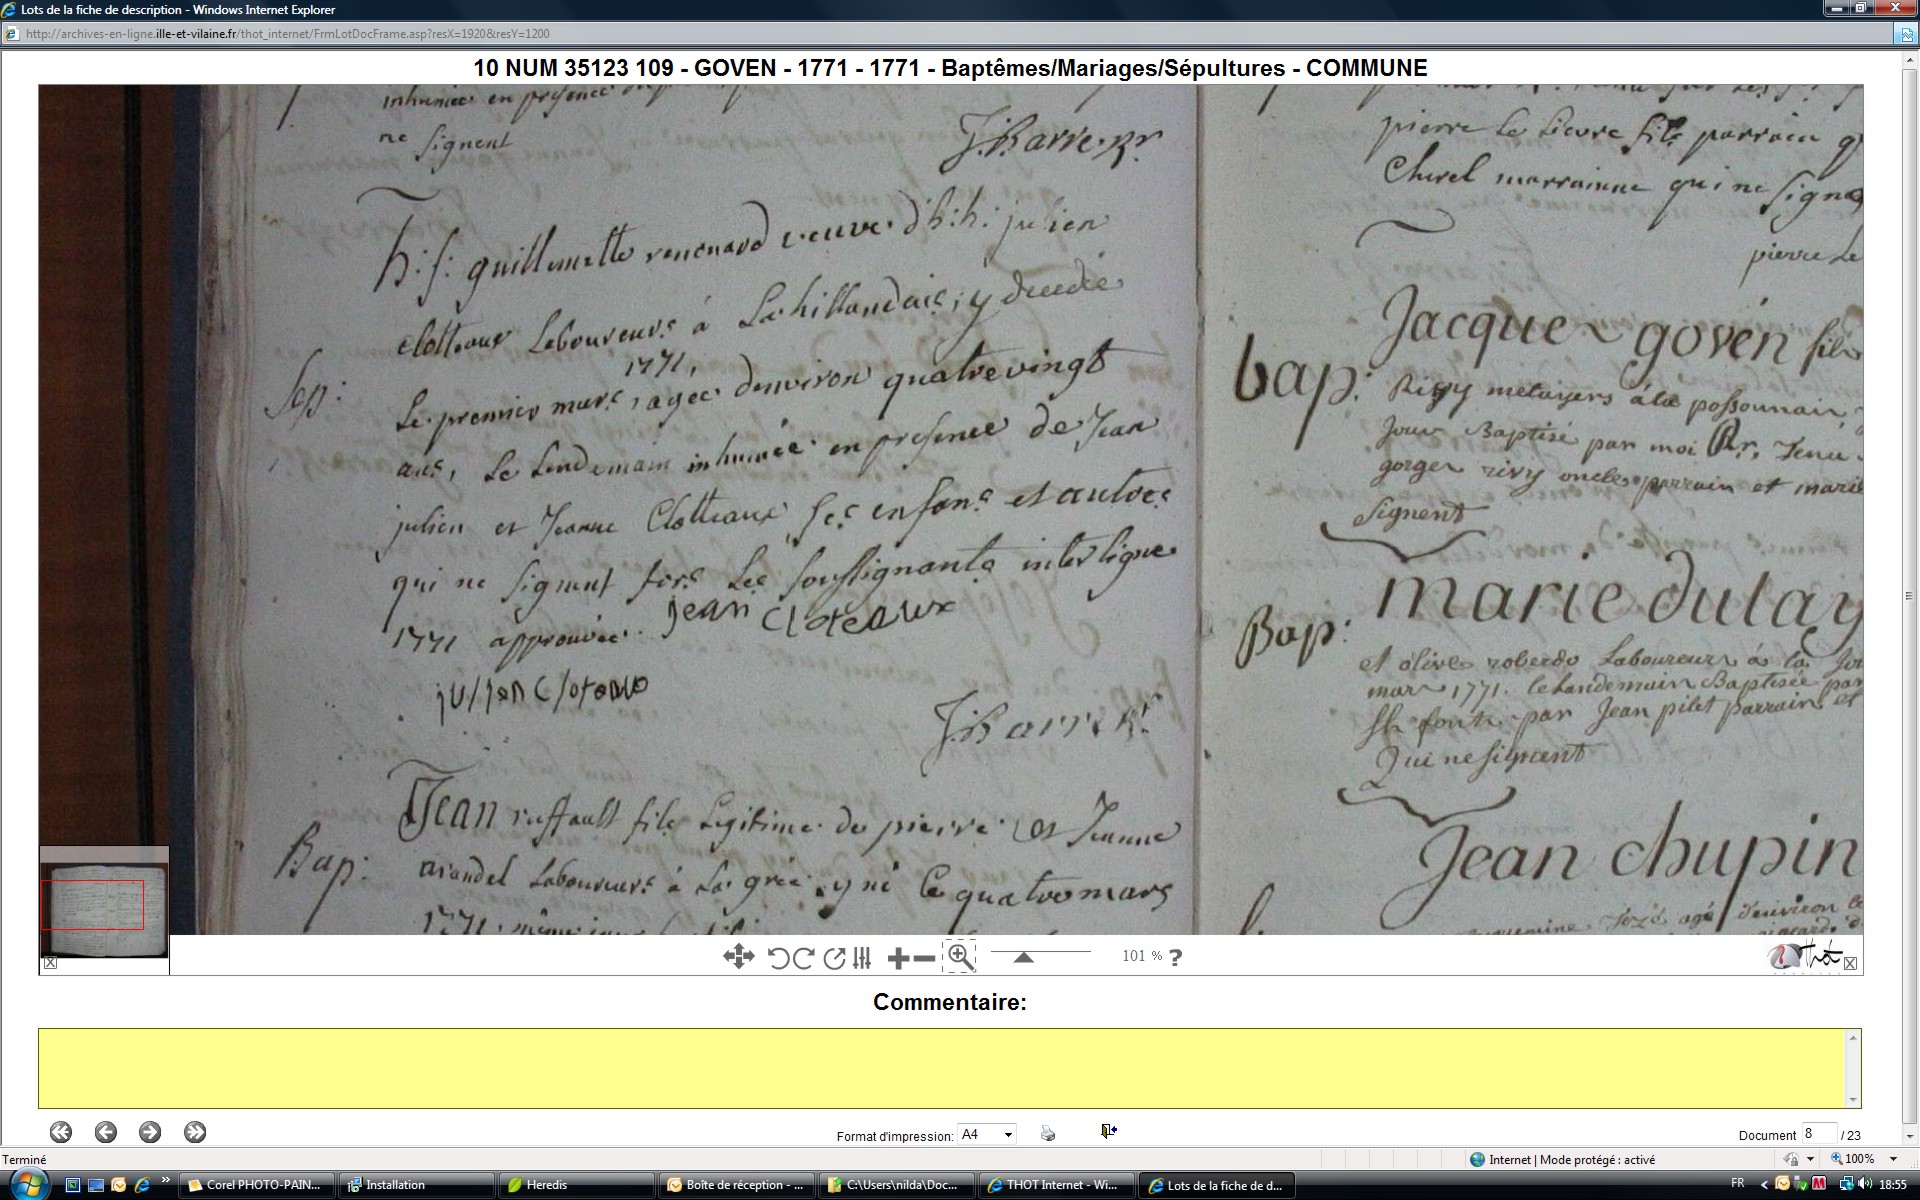 Lots de la fiche de description - Windows Internet Explorer
http://archives-en-ligne.ille-et-vilaine.fr/thot_internet/FrmLotDocFrame.asp?resX=1920&resY=1200
10 NUM 35123 109 - GOVEN - 1771 - 1771 - Baptêmes/Mariages/Sépultures - COMMUNE
inhumée en presence
ne signent
J. Barre. Rr
h: f: guillemette renouard veuve d'h: h: julien
clotteaux Laboureurs à La hillandais, y decedée
1771,
Sep:
Le premier mars, agée d'environ quatrevingt
ans, Le Lendemain inhumée en presence de Jean
julien et Jeanne Clotteaux ses enfans et autres
qui ne signent fors Les soussignants interligne
1771 approuvée. jean Cloteaux
julien Cloteaux
J. Barre Rr
Jean ruffault fils Legitime de pierre et Jeanne
Bap:
Laboureurs à La grée y né Le quatre mars
1771, même jour
pierre Le Lievre fils parrain
Cherel marrainne qui ne signe
pierre Le
Jacque goven fils
bap:
Rivy metayers à la possonnais
jour Baptisé par moi Rr, Tenu
gorger rivy oncle parrain et marie
signent
marie dulay
Bap:
et olive Laboureurs à la
mars 1771. le landemain Baptisée par
fonts par Jean pilet parrain et
Qui ne signent
Jean chupin
agé d'environ
101 % ?
Thot
Commentaire:
Format d'impression: A4
Document 8 / 23
Terminé
Internet | Mode protégé : activé
100%
Corel PHOTO-PAIN...
Installation
Heredis
Boîte de réception - ...
C:\Users\nilda\Doc...
THOT Internet - Wi...
Lots de la fiche de d...
FR
18:55